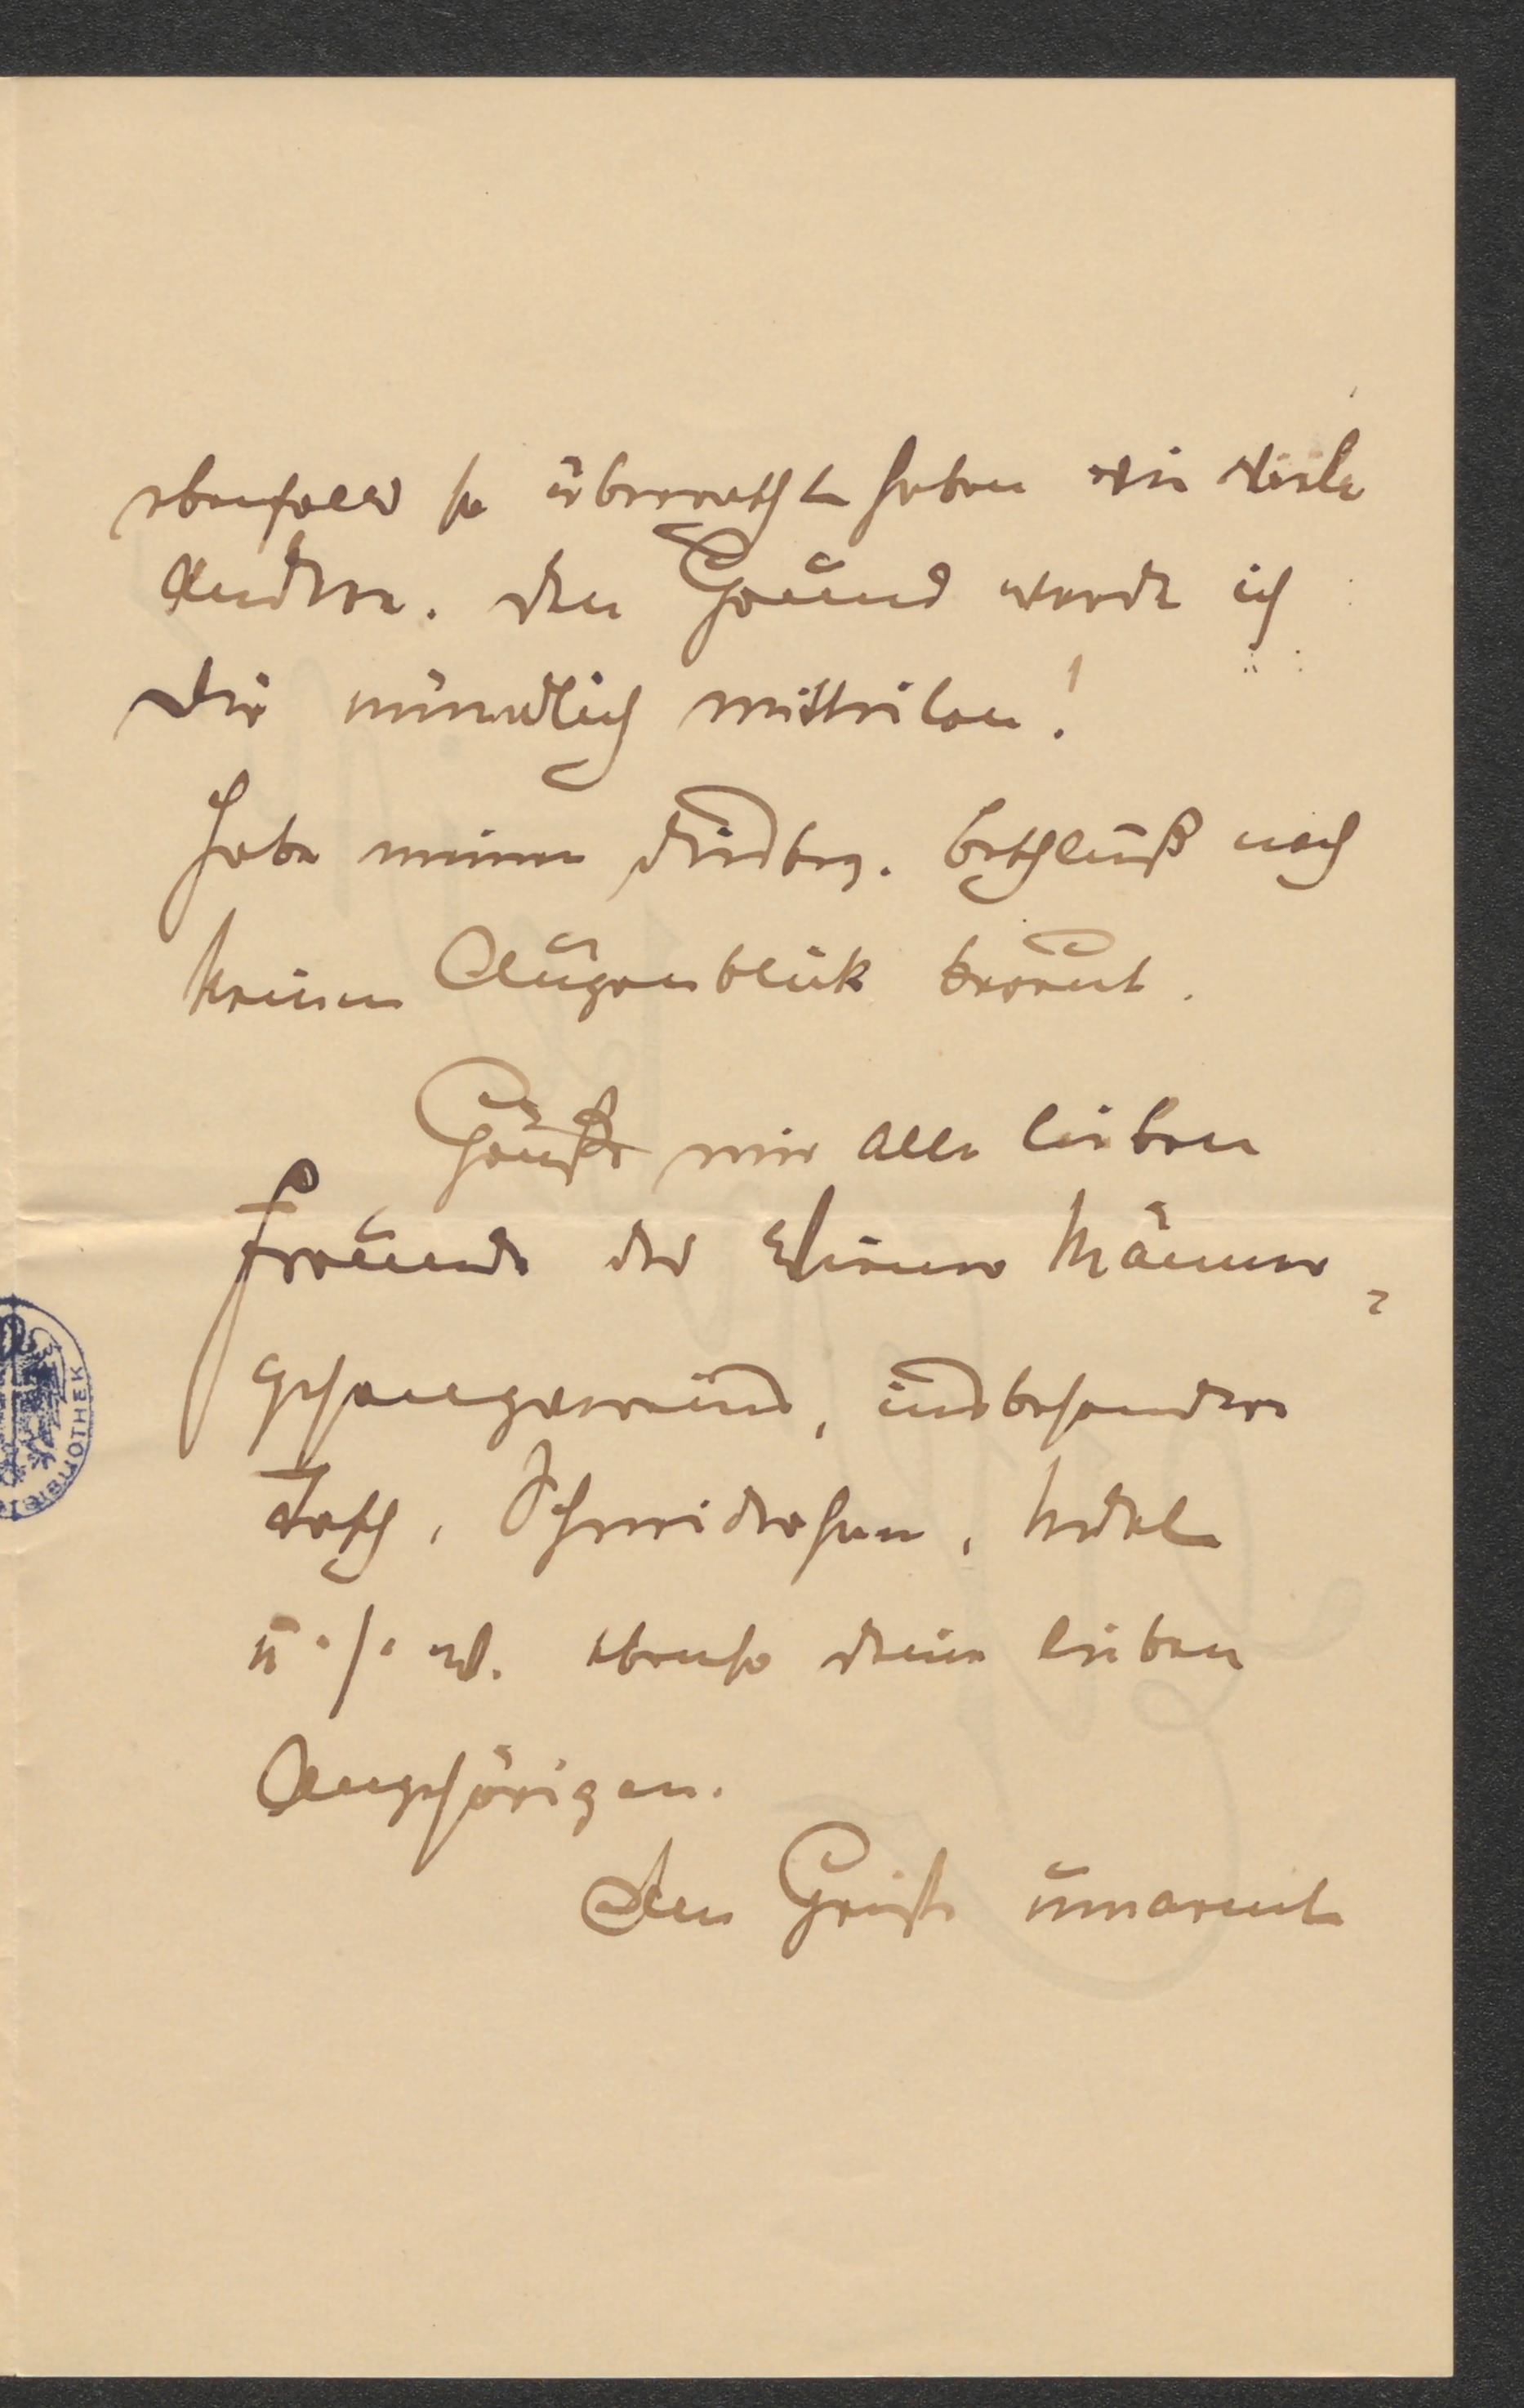 ebenfalls so überrascht haben wie viele
Andere. Den Grund werde ich
Dir mündlich mittheilen!
Habe meinen diesbez. Beschluß noch
keinen Augenblick bereut.
Grüße mir alle lieben
Freunde des Wiener Männer-
gesangverein's, insbesondere
Schneiderhan,
u. s. w. ebenso deine lieben
Angehörigen.
Den Gruß umarmt
BIBLIOTHEK